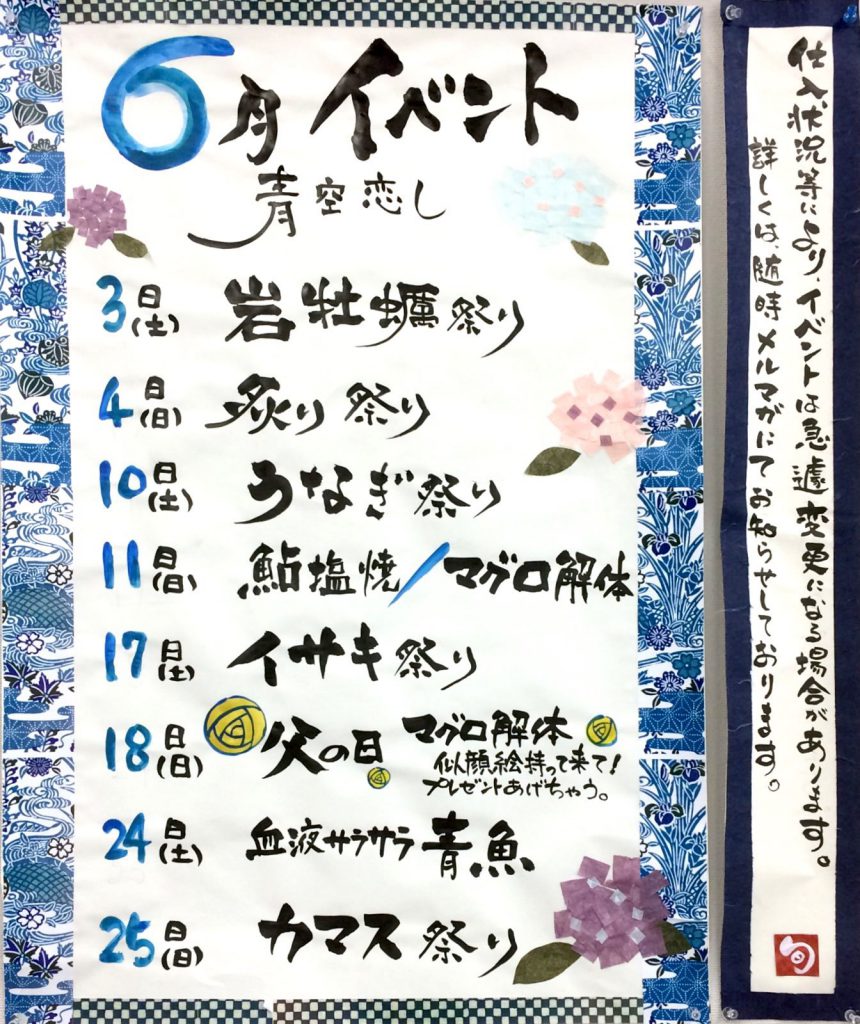 6月イベント
青空恋し
3日(土) 岩牡蠣祭り
4日(日) 炙り祭り
10日(土) うなぎ祭り
11日(日) 鮎塩焼/マグロ解体
17日(土) イサキ祭り
18日(日) 父の日 マグロ解体
似顔絵持って来て!
プレゼントあげちゃう。
24日(土) 血液サラサラ青魚
25日(日) カマス祭り
仕入状況等により、イベントは急遽変更になる場合があります。
詳しくは、随時メルマガにてお知らせしております。